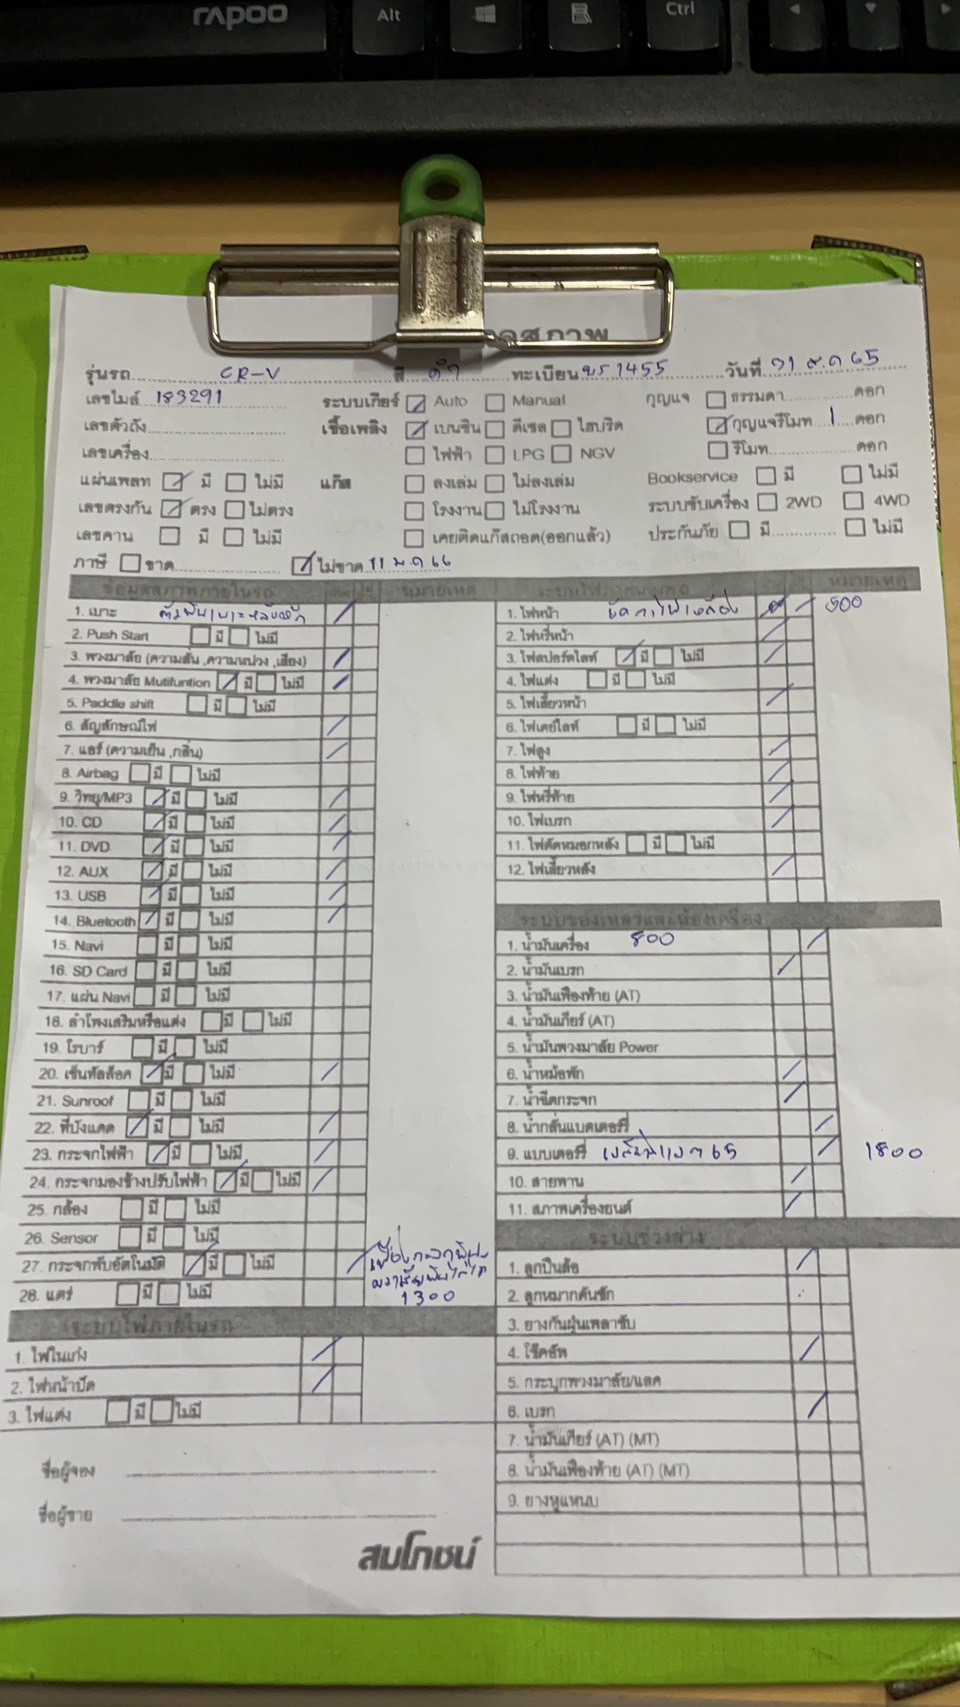 rapoo Alt Ctrl
รุ่นรถ CR-V สี ดำ ทะเบียน 1455 วันที่ 31 ต.ค 65
เลขไมล์ 183291 ระบบเกียร์ Auto Manual กุญแจ ธรรมดา ดอก
เลขตัวถัง เชื้อเพลิง เบนซิน ดีเซล ไฮบริด กุญแจรีโมท 1 ดอก
เลขเครื่อง ไฟฟ้า LPG NGV รีโมท ดอก
แผ่นเพลท มี ไม่มี แก๊ส ลงเล่ม ไม่ลงเล่ม Bookservice มี ไม่มี
เลขตรงกัน ตรง ไม่ตรง โรงงาน ไม่โรงงาน ระบบขับเครื่อง 2WD 4WD
เลขคาน มี ไม่มี เคยติดแก๊สถอด(ออกแล้ว) ประกันภัย มี ไม่มี
ภาษี ขาด ไม่ขาด 11 ม.ค 66
ข้อมูลสภาพภายในรถ หมายเหตุ
1. เบาะ
2. Push Start มี ไม่มี
3. พวงมาลัย (ความสั่น ,ความหน่วง ,เสียง)
4. พวงมาลัย Mutifuntion มี ไม่มี
5. Paddle shift มี ไม่มี
6. สัญลักษณ์ไฟ
7. แอร์ (ความเย็น ,กลิ่น)
8. Airbag มี ไม่มี
9. วิทยุ/MP3 มี ไม่มี
10. CD มี ไม่มี
11. DVD มี ไม่มี
12. AUX มี ไม่มี
13. USB มี ไม่มี
14. Bluetooth มี ไม่มี
15. Navi มี ไม่มี
16. SD Card มี ไม่มี
17. แผ่น Navi มี ไม่มี
18. ลำโพงเสริมหรือแต่ง มี ไม่มี
19. โรบาร์ มี ไม่มี
20. เซ็นทัลล็อค มี ไม่มี
21. Sunroof มี ไม่มี
22. ที่บังแดด มี ไม่มี
23. กระจกไฟฟ้า มี ไม่มี
24. กระจกมองข้างปรับไฟฟ้า มี ไม่มี
25. กล้อง มี ไม่มี
26. Sensor มี ไม่มี
27. กระจกพับอัตโนมัติ มี ไม่มี
1300
28. แตร มี ไม่มี
ระบบไฟภายในรถ
1. ไฟในเก๋ง
2. ไฟหน้าปัด
3. ไฟแต่ง มี ไม่มี
ชื่อผู้จอง
ชื่อผู้ขาย
สมโภชน์
หมายเหตุ
1. ไฟหน้า ขัดโคมไฟเหลือง 500
2. ไฟหรี่หน้า
3. ไฟสปอร์ตไลท์ มี ไม่มี
4. ไฟแต่ง มี ไม่มี
5. ไฟเลี้ยวหน้า
6. ไฟเดย์ไลท์ มี ไม่มี
7. ไฟสูง
8. ไฟท้าย
9. ไฟหรี่ท้าย
10. ไฟเบรก
11. ไฟตัดหมอกหลัง มี ไม่มี
12. ไฟเลี้ยวหลัง
ระบบของเหลวและห้องเครื่อง
1. น้ำมันเครื่อง 800
2. น้ำมันเบรก
3. น้ำมันเฟืองท้าย (AT)
4. น้ำมันเกียร์ (AT)
5. น้ำมันพวงมาลัย Power
6. น้ำหม้อพัก
7. น้ำฉีดกระจก
8. น้ำกลั่นแบตเตอร์รี่
9. แบบเตอร์รี่ 65 1800
10. สายพาน
11. สภาพเครื่องยนต์
ระบบช่วงล่าง
1. ลูกปืนล้อ
2. ลูกหมากคันชัก
3. ยางกันฝุ่นเพลาขับ
4. โช๊คอัพ
5. กระบุกพวงมาลัย/แลค
6. เบรก
7. น้ำมันเกียร์ (AT) (MT)
8. น้ำมันเฟืองท้าย (AT) (MT)
9. ยางหูแหนบ